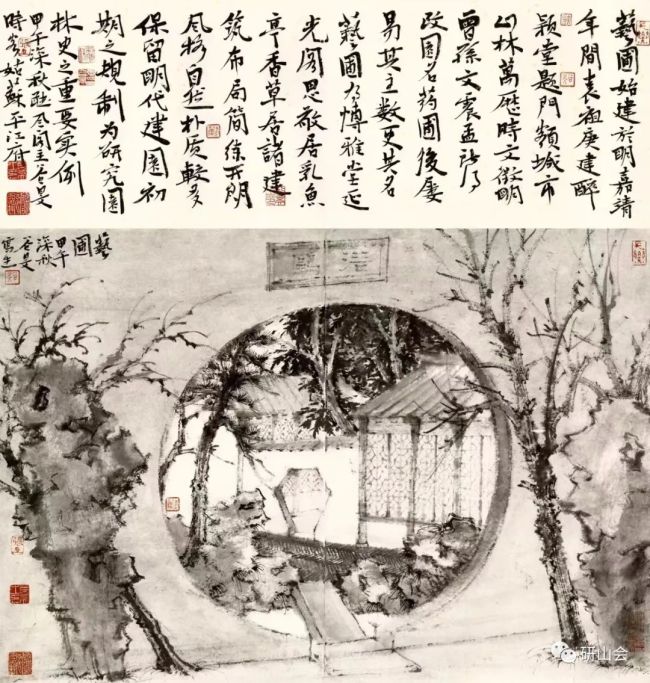 藝圃始建於明嘉靖
年間袁祖庚建醉
穎堂題門額城市
山林萬歷時文徵明
曾孫文震孟
改園名葯圃後屢
易其主數更其名
藝圃有愽雅堂延
光閣思敬居乳魚
亭香草居諸建
筑布局简練开朗
風格自然朴质較多
保留明代建園初
期之規制为研究園
林史之重要实例
甲午深秋風閣主谷旻
時客姑蘇平江府
藝圃
甲午
深秋
谷旻
寫生
研山会